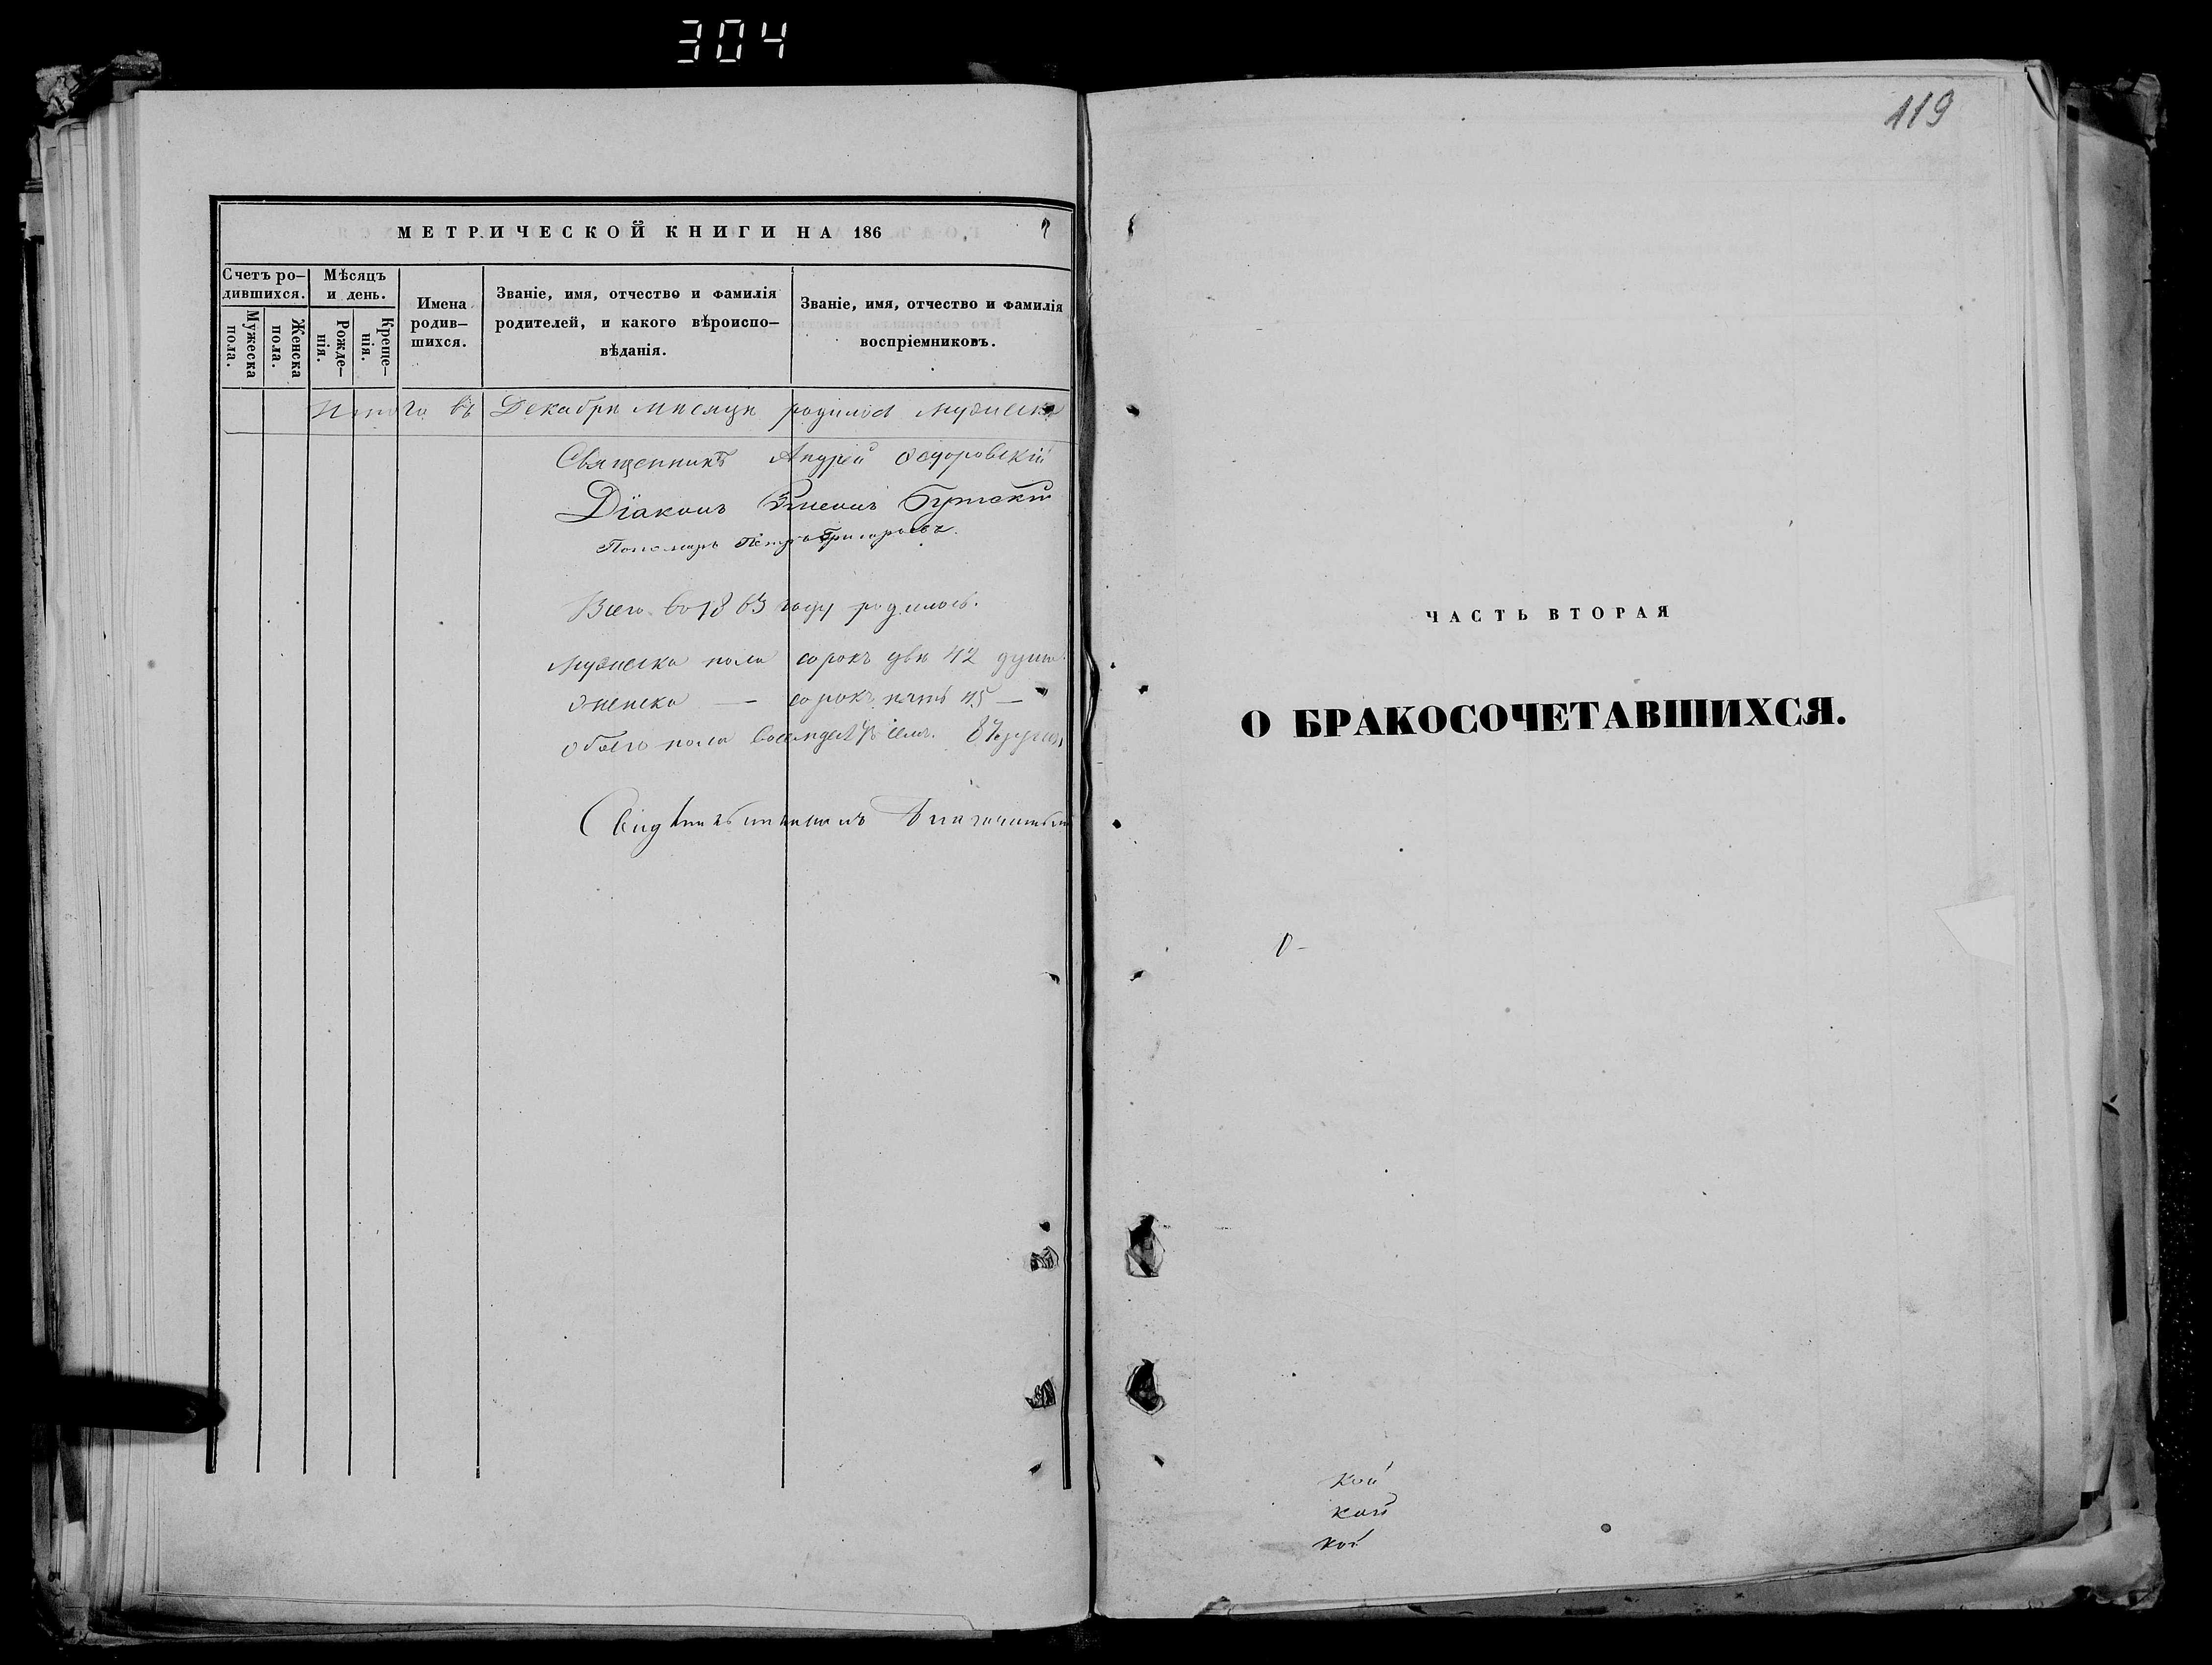 304
119
МЕТРИЧЕСКОЙ КНИГИ НА 186
Счетъ ро-
дившихся.
Мѣсяцъ
и день.
Мужеска
пола.
Женска
пола.
Рожде-
нія.
Креще-
нія.
Имена
родив-
шихся.
Званіе, имя, отчество и фамилія
родителей, и какого вѣроиспо-
вѣданія.
Званіе, имя, отчество и фамилія
воспріемниковъ.
Итого въ Декабрѣ мѣсяцѣ родилось мужеска
Священникъ Андрей Ѳедоровскій
Діаконъ
Пономарь Петръ Григорьевъ.
Всего въ 1863 году родилось.
Мужеска пола сорокъ два 42 душ
женска — сорокъ пять 45 —
обоего пола восемдесятъ семь. 87 душъ
ЧАСТЬ ВТОРАЯ
О БРАКОСОЧЕТАВШИХСЯ.
кой
кой
кой